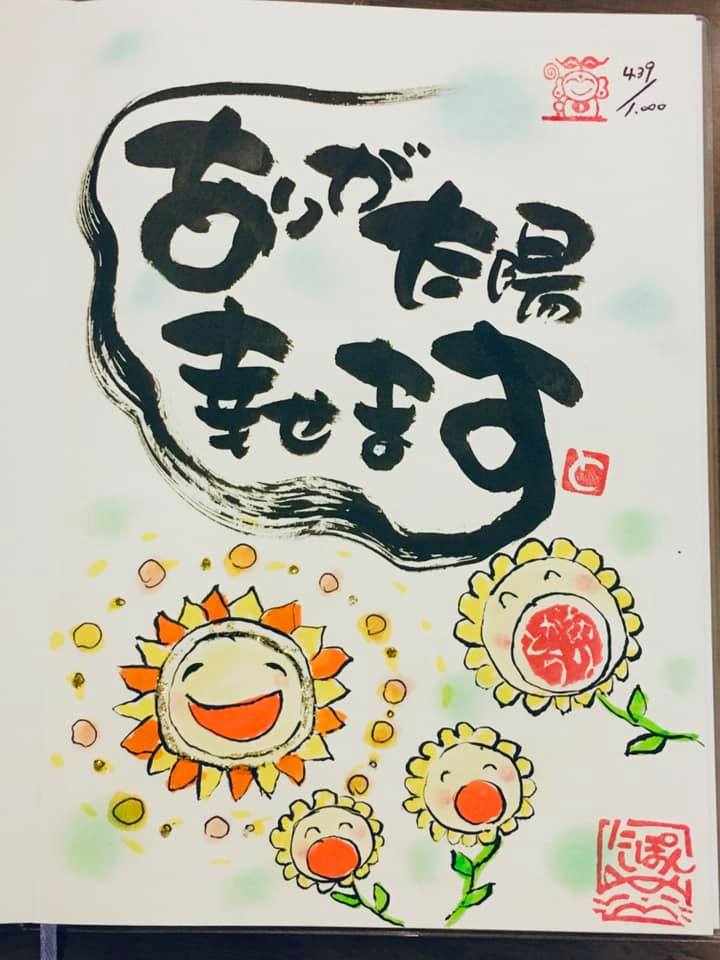 439/1.000
ありが太陽
幸せます
と
にっぽん